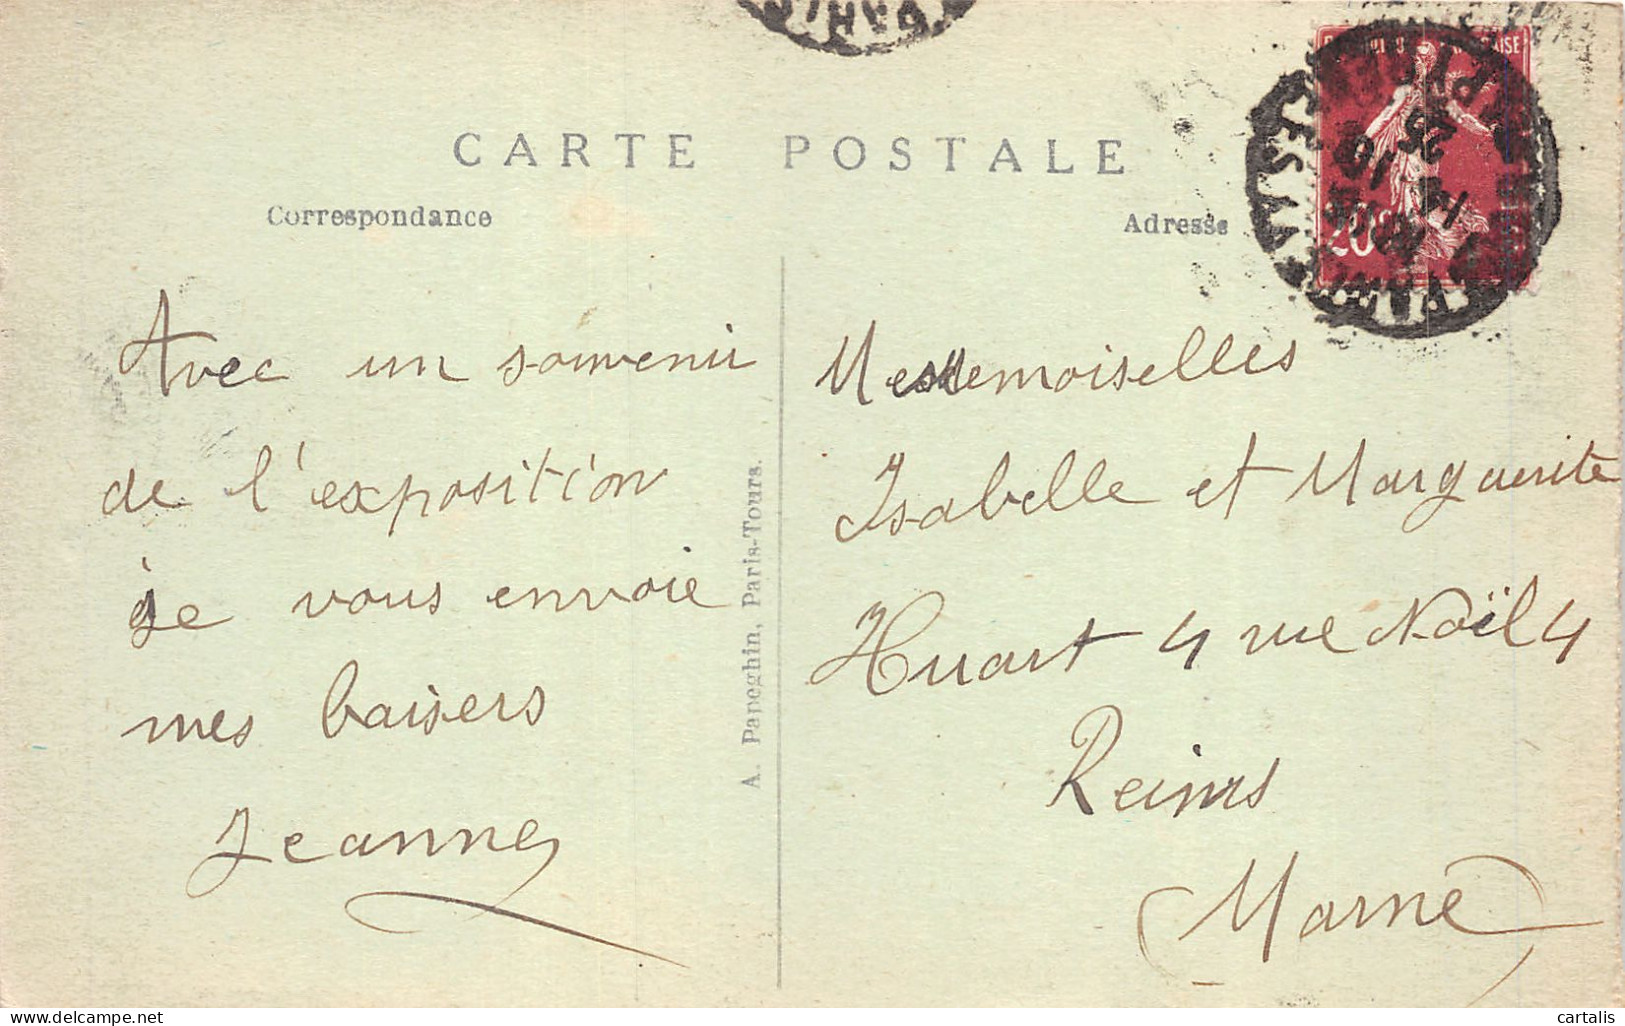 CARTE POSTALE
Correspondance
Adresse
20c
Avec un souvenir
de l'exposition
je vous envoie
mes baisers
Jeanne
A. Papeghin, Paris-Tours.
Mesdemoiselles
Isabelle et Marguerite
Huart 4 rue Noël 4
Reims
Marne
delcampe.net
cartalis